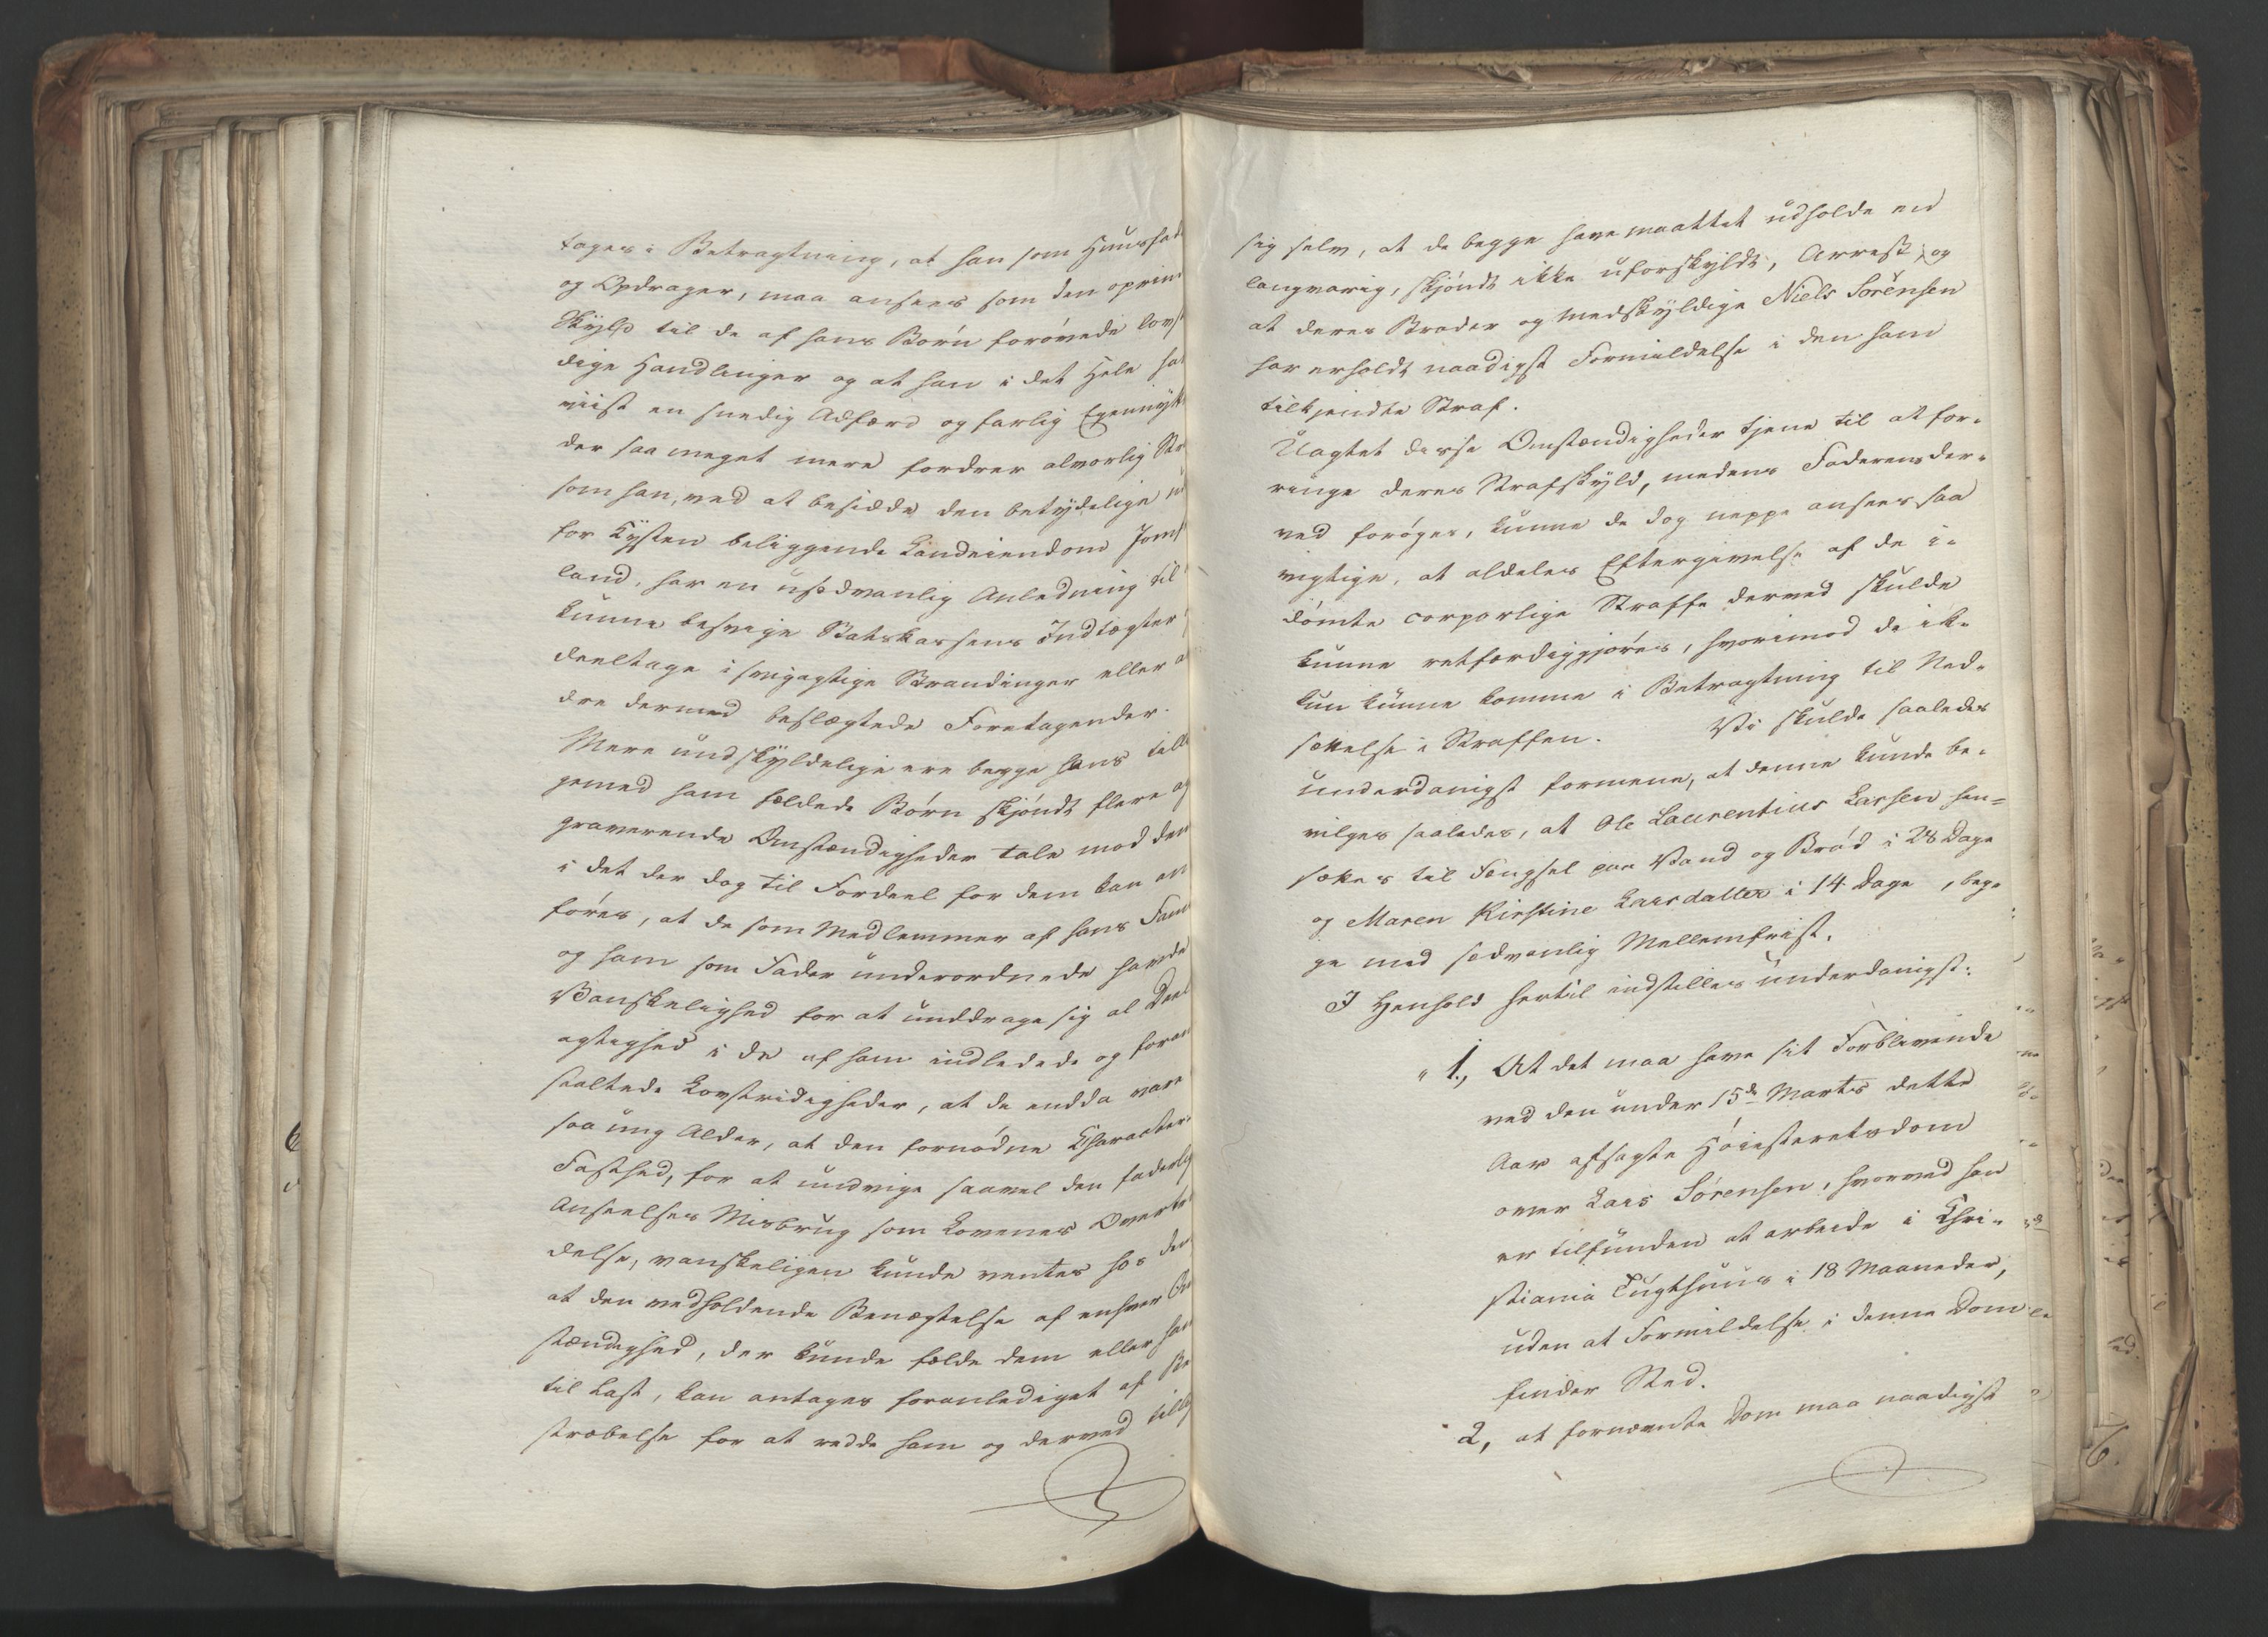 tages i Betragtning, at han som Huusfad
og Opdrager, maa ansees som den oprin
Skyld til de af hans Børn forøvede lovst
dige Handlinger og at han i det Hele har
viist en snedig Adfærd og farlig Egennytt
der saa meget mere fordrer alvorlig Str
som han, ved at besidde den betydelige
for Kysten beliggende Landeiendom Jomf
land, har en usædvanlig Anledning til
kunne besvige Statskassens Indtægter
deeltage i svigagtige Strandinger eller a
dre dermed beslægtede Foretagender.
Mere undskyldelige ere begge hans tilli
gemed ham fældede Børn skjøndt flere og
graverende Omstændigheder tale mod dem
i det der dog til Fordeel for dem kan an
føres, at de som Medlemmer af hans Fam
og ham som Fader underordnede havde
Vanskelighed for at unddrage sig al Deel
agtighed i de af ham indledede og foran
staltede Lovstridigheder, at de endda vare
saa ung Alder, at den fornødne Characteer
Fasthed, for at undvige saavel den faderlig
Anseelses Misbrug som Lovenes Overtræ
delse, vanskeligen kunde ventes hos dem
at den vedholdende Benægtelse af enhver Om
stændighed, der kunde fælde dem eller ham
til Last, kan antages foranlediget af Be
stræbelse for at redde ham og derved tillig
sig selv, at de begge have maattet udholde en
langvarig, skjøndt ikke uforskyldt, Arrest, og
at deres Broder og medskyldige Niels Sörensen
har erholdt naadigst Formildelse i den ham
tilkjendte Straf.
Uagtet disse Omstændigheder tjene til at for-
ringe deres Strafskyld, medens Faderens der-
ved forøges, kunne de dog neppe ansees saa
vigtige, at aldeles Eftergivelse af de i-
dømte corporlige Straffe derved skulde
kunne retfærdiggjøres, hvorimod de ik-
kun kunne komme i Betragtning til Ned-
sættelse i Straffen. Vi skulde saaledes
underdanigst formene, at denne kunde be-
vilges saaledes, at Ole Laurentius Larsen hen-
sættes til Fængsel paa Vand og Brød i 28 Dage
og Maren Kirstine Larsdatter i 14 Dage, beg-
ge med sædvanlig Mellemfrist.
I Henhold hertil indstilles underdanigst:
" 1., At det maa have sit Forblivende
ved den under 15de Marts dette
Aar afsagte Høiesteretsdom
over Lars Sørensen, hvorved han
er tilfunden at arbeide i Chri-
stiania Tugthuus i 18 Maaneder,
uden at Formildelse i denne Dom
finder Sted.
" 2, at fornævnte Dom maa naadigst